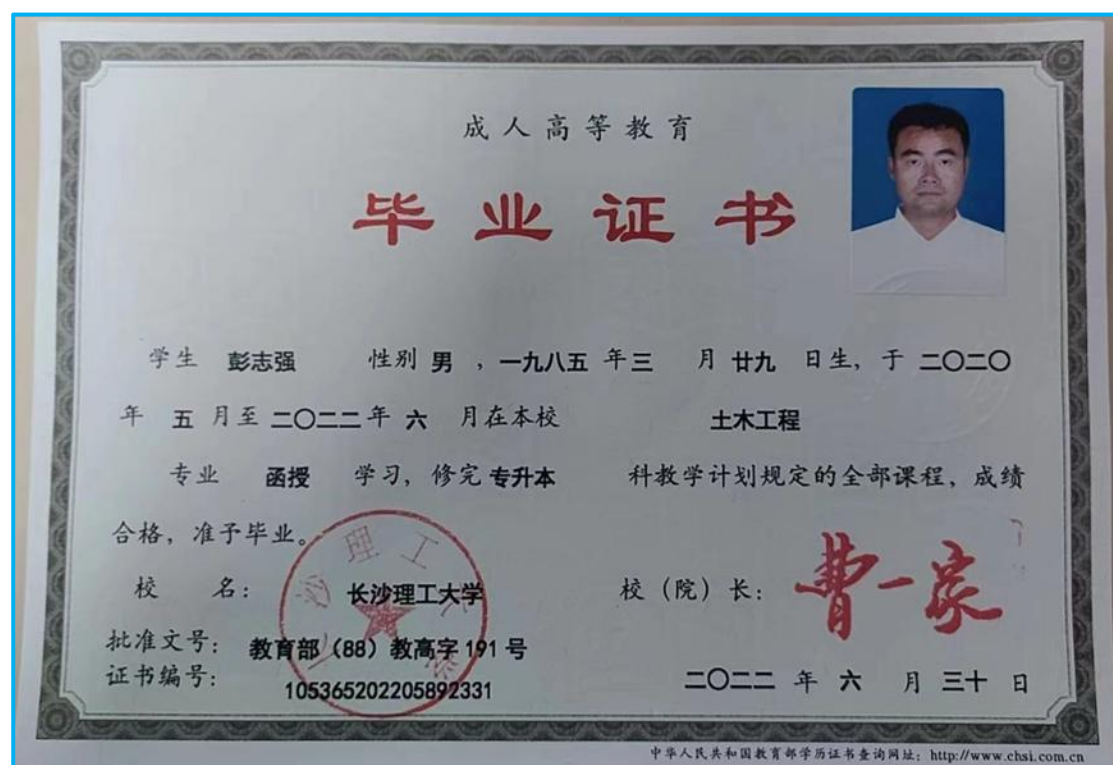 成人高等教育
毕业证书
学生 彭志强 性别 男 ，一九八五 年 三 月 廿九 日生，于 二〇二〇
年 五 月至 二〇二二 年 六 月在本校 土木工程
专业 函授 学习，修完 专升本 科教学计划规定的全部课程，成绩
合格，准予毕业。
校 名： 长沙理工大学 校（院）长： 曹一家
批准文号： 教育部（88）教高字 191 号
证书编号： 105365202205892331 二〇二二 年 六 月 三十 日
中华人民共和国教育部学历证书查询网址：http://www.chsi.com.cn